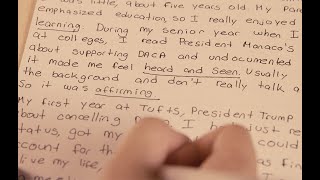 was little, about five years old. My
emphasized education, so I really enjoyed
learning. During my senior year when I
at colleges, I read President Monaco's
about supporting DACA and undocumented
it made me feel heard and seen. Usually
the background and don't really talk a
So it was affirming.
My first year at Tufts, President Trump
about cancelling I just re
status, got my could
account for th as fin
live my life,